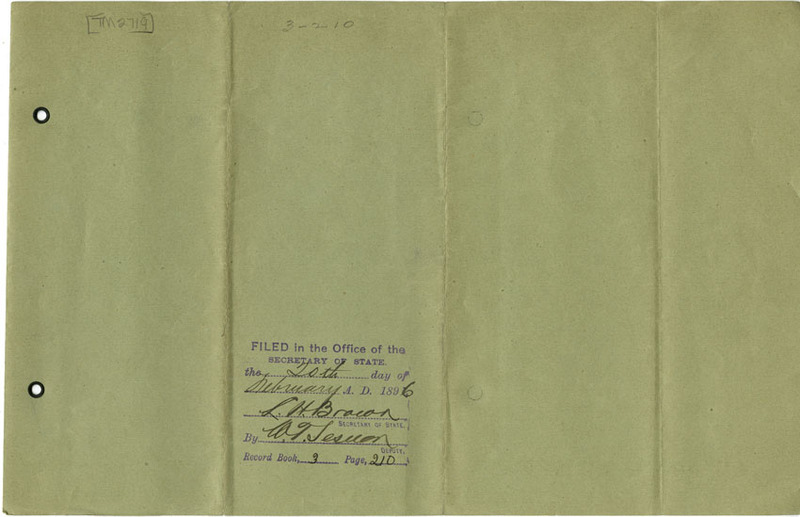 TM2719
3-2-10
FILED in the Office of the
SECRETARY OF STATE.
the 20th day of
February A. D. 1896
L. H. Brown
SECRETARY OF STATE.
By W. T. Sesnon
DEPUTY.
Record Book, 3 Page, 210